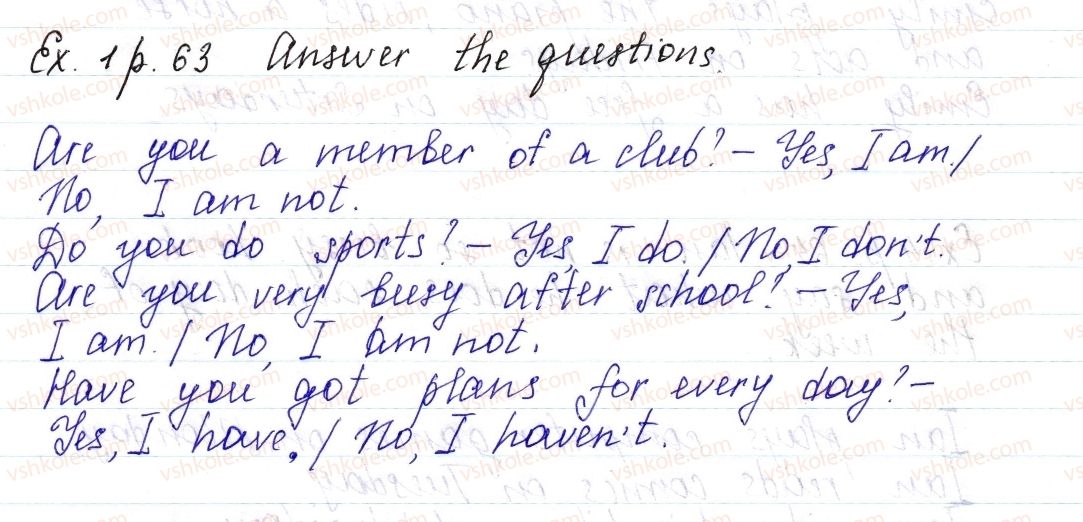 Ex. 1 p. 63 Answer the questions.
Are you a member of a club? – Yes, I am. /
No, I am not.
Do you do sports? – Yes, I do. / No, I don't.
Are you very busy after school? – Yes,
I am. / No, I am not.
Have you got plans for every day? –
Yes, I have. / No, I haven't.